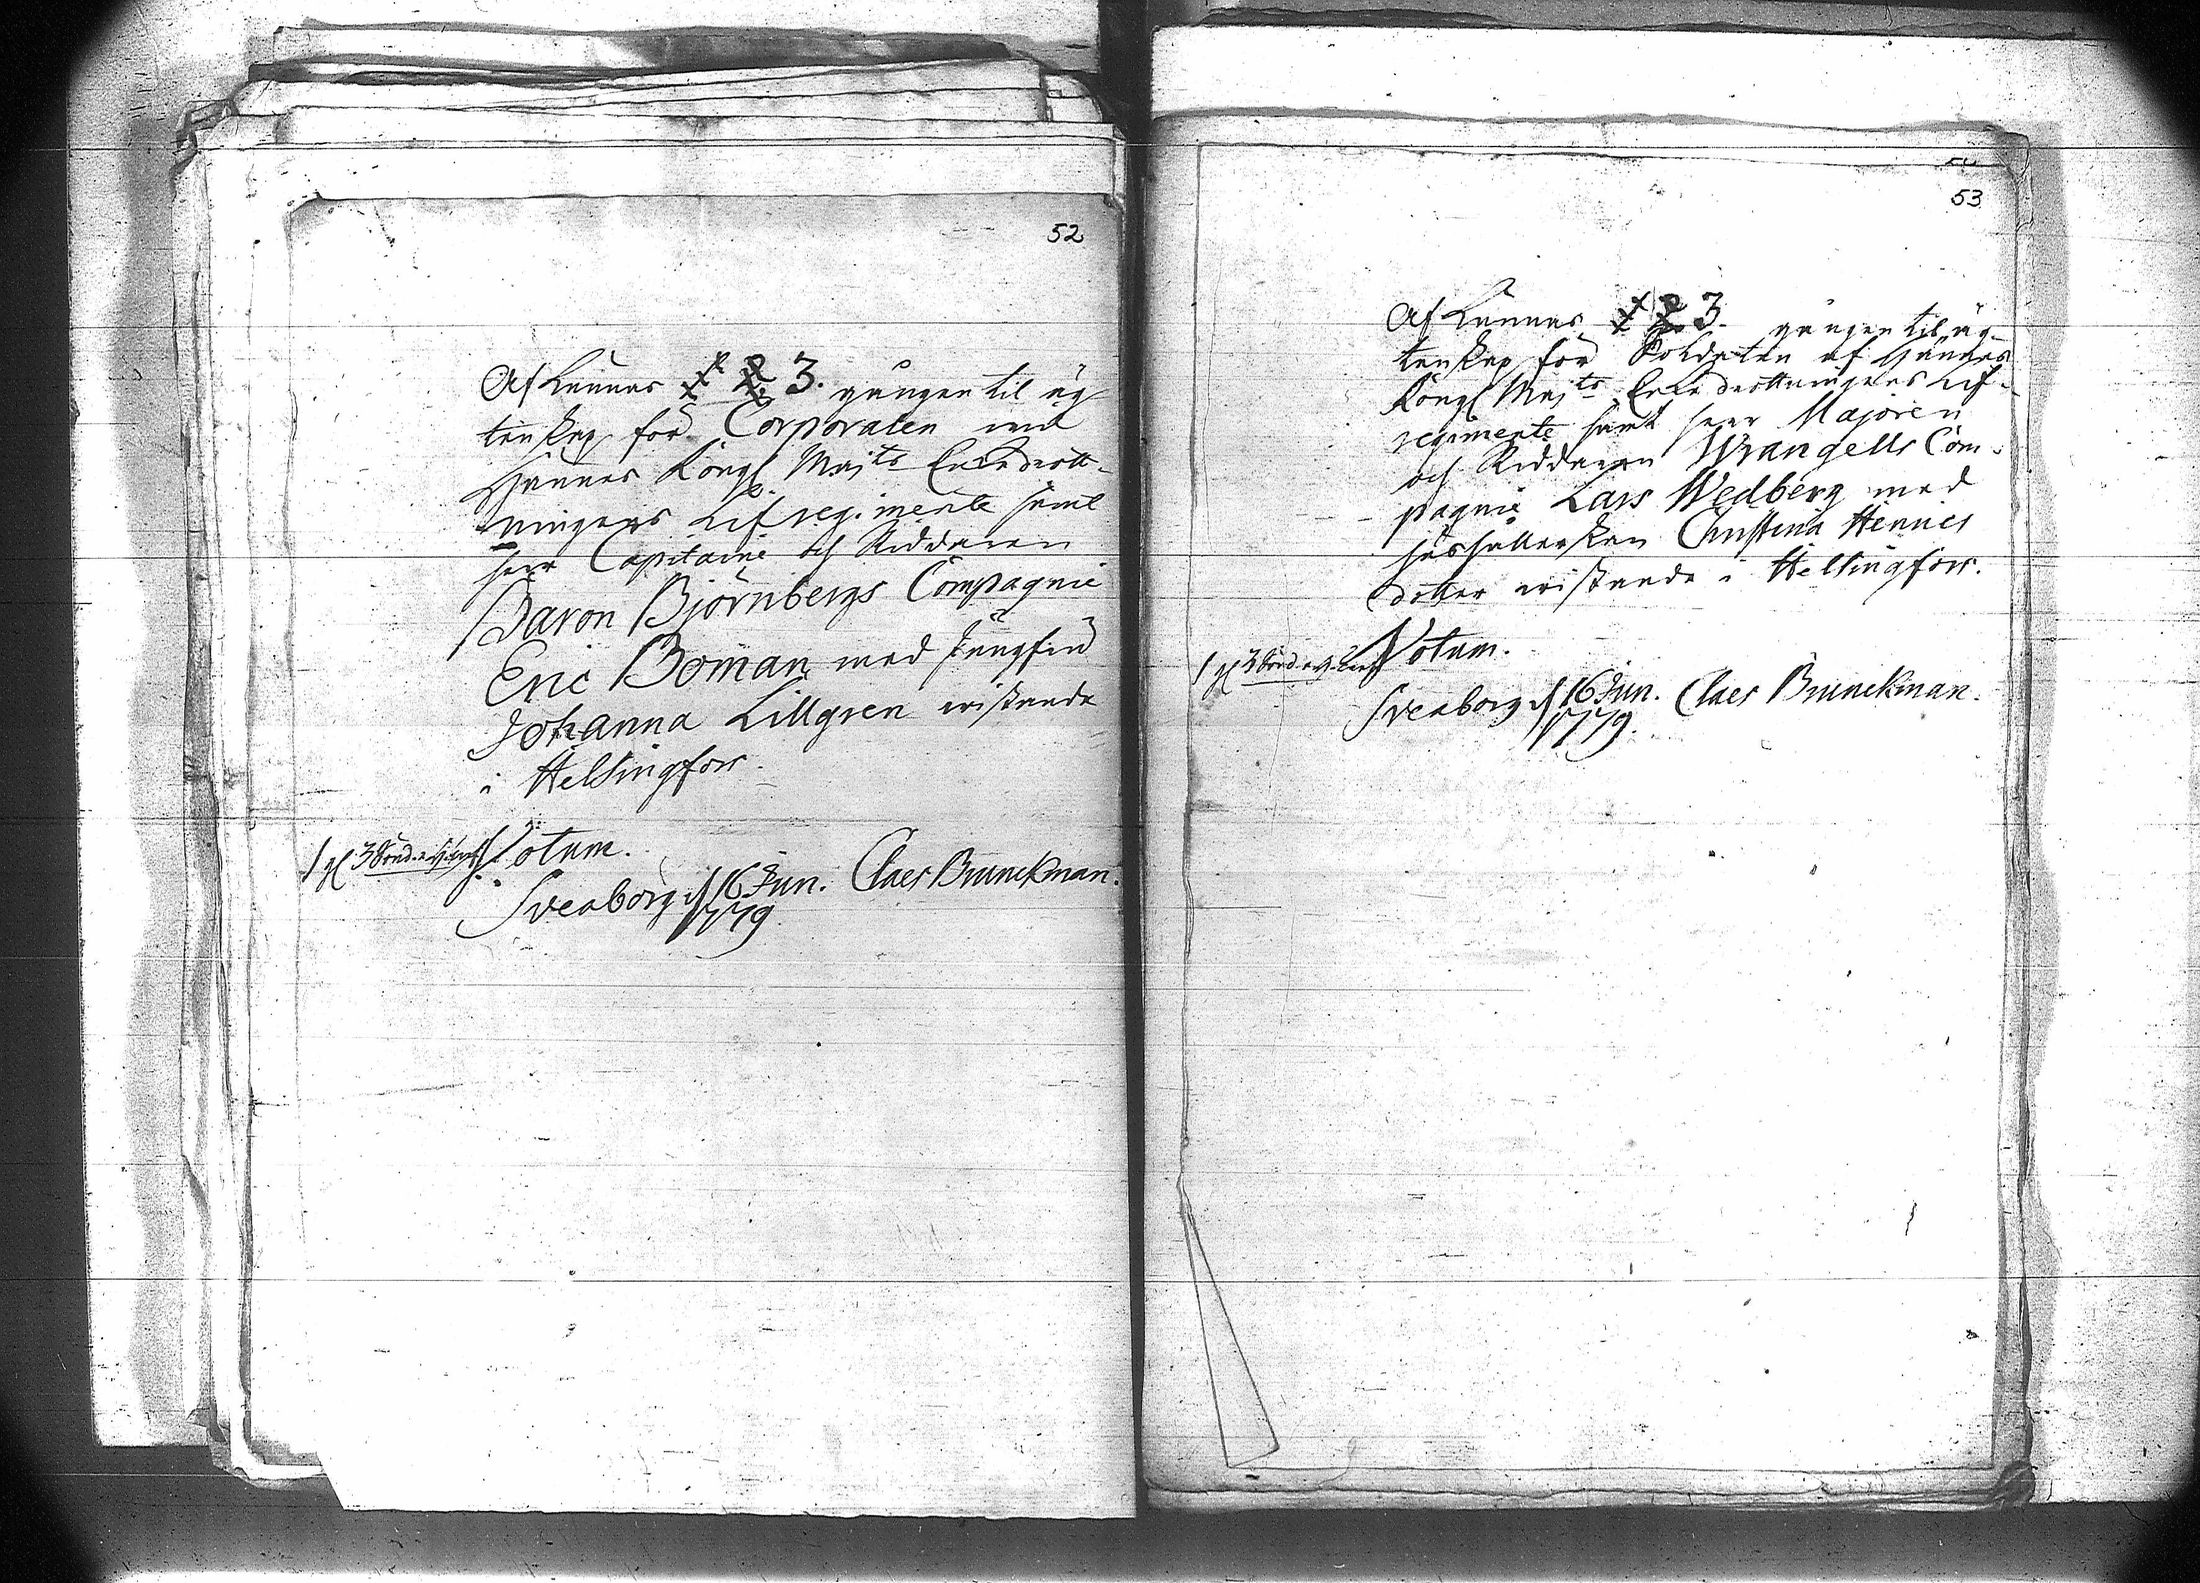 52
Aflyses 1 2 3. gången til äg
tenskap för Corporalen vid
Hennes Kongl Majts Enkedrott-
ningens Lifregimente samt
herr Capitaine och Riddaren
Baron Björnbergs Compagnie
Eric Boman med Jungfru
Johanna Lillgren vistande
i Helsingfors.
Votum.
Sveaborg d 16 Jun. Claes Brunckman.
1779.
53
Aflyses 1 2 3. gången til äg
tenskap för Soldaten af Hennes
Kongl Majts Enkedrottningens Lif-
regimente samt herr Majoren
och Riddaren Wrangells Com-
pagnie Lars Wedberg med
hushållerskan Christina Hennics
dotter vistande i Helsingfors.
Votum.
Sveaborg d 16 Jun. Claes Brunckman.
1779.